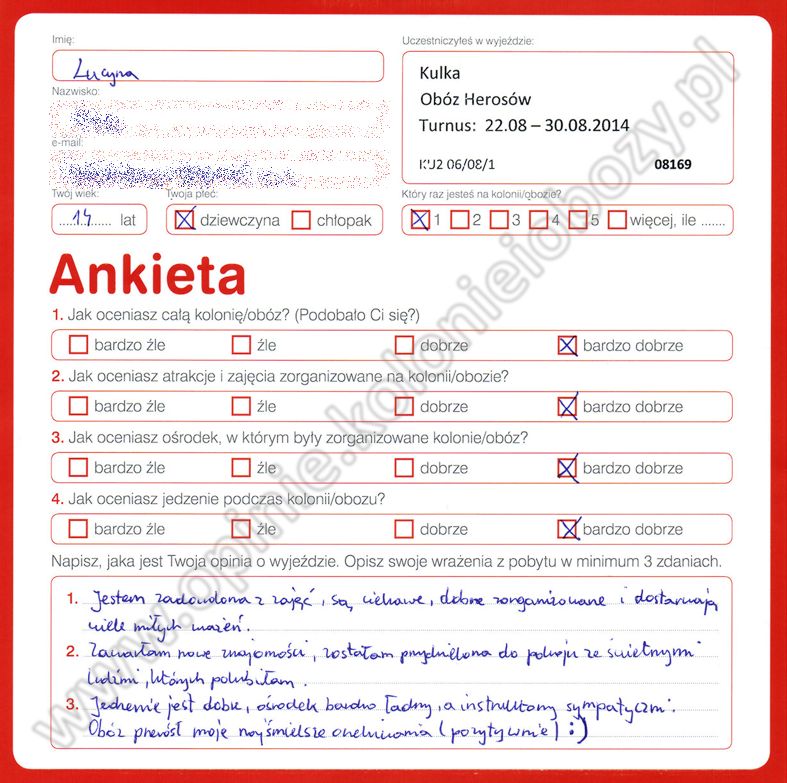 Imię:
Lucyna
Uczestniczyłeś w wyjeździe:
Kulka
Obóz Herosów
Turnus: 22.08 – 30.08.2014
KU2 06/08/1 08169
Nazwisko:
e-mail:
Twój wiek: Twoja płeć: Który raz jesteś na kolonii/obozie?
14 lat dziewczyna chłopak 1 2 3 4 5 więcej, ile .......
Ankieta
1. Jak oceniasz całą kolonię/obóz? (Podobało Ci się?)
bardzo źle źle dobrze bardzo dobrze
2. Jak oceniasz atrakcje i zajęcia zorganizowane na kolonii/obozie?
bardzo źle źle dobrze bardzo dobrze
3. Jak oceniasz ośrodek, w którym były zorganizowane kolonie/obóz?
bardzo źle źle dobrze bardzo dobrze
4. Jak oceniasz jedzenie podczas kolonii/obozu?
bardzo źle źle dobrze bardzo dobrze
Napisz, jaka jest Twoja opinia o wyjeździe. Opisz swoje wrażenia z pobytu w minimum 3 zdaniach.
1. Jestem zadowolona z zajęć, są ciekawe, dobrze zorganizowane i dostarczają
wiele miłych wrażeń.
2. Zawarłam nowe znajomości, zostałam przydzielona do pokoju ze świetnymi
ludźmi, których polubiłam.
3. Jedzenie jest dobre, ośrodek bardzo ładny, a instruktorzy sympatyczni.
Obóz przerósł moje najśmielsze oczekiwania (pozytywnie) :)
www.opinie.kolonieiobozy.pl